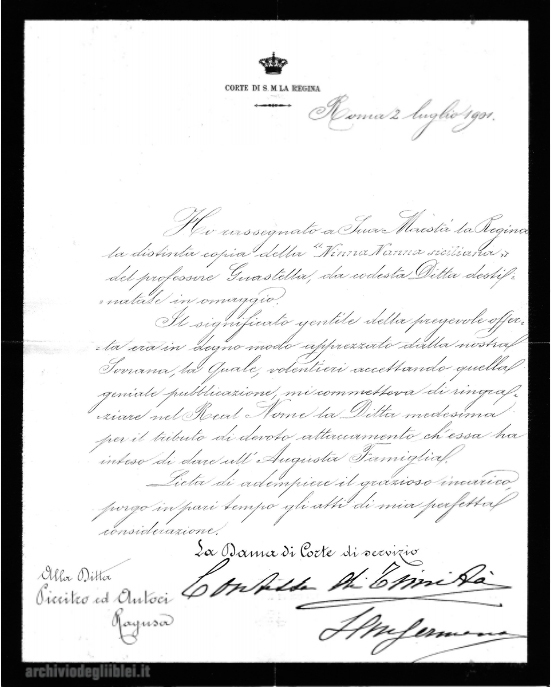 CORTE DI S. M LA REGINA
Roma 2 luglio 1901.
Ho rassegnato a Sua Maestà la Regina
la distinta copia della "Ninna Nanna siciliana"
del professore Guastella, da codesta Ditta desti-
natale in omaggio.
Il significato gentile della pregevole offer-
ta era in ogno modo apprezzato dalla nostra
Sovrana, la Quale, volentieri accettando quella
geniale pubblicazione, mi commetteva di ringra-
ziare nel Real Nome la Ditta medesima
per il tributo di devoto attaccamento ch'essa ha
inteso di dare all'Augusta Famiglia.
Lieta di adempiere il grazioso incarico,
porgo in pari tempo gli atti di mia perfetta
considerazione.
La Dama di Corte di servizio
Alla Ditta
Piccitto ed Antoci
Ragusa
Contessa di Trinità
archiviodegliiblei.it